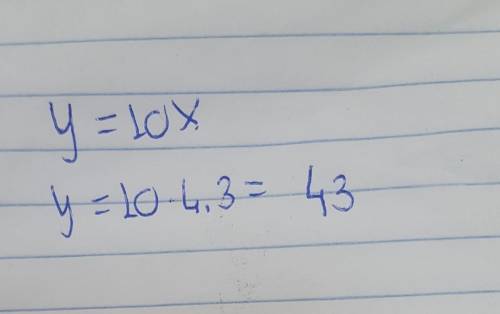 y = 10x
y = 10 · 4.3 = 43